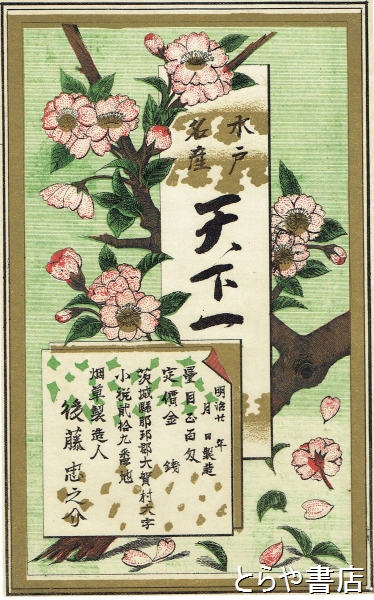 水戸
名産
天下一
明治廿 年
月 日製造
量目正百匁
定價金 銭
茨城縣那珂郡大賀村大字
小祝貳拾九番地
烟草製造人
後藤忠之介
とらや書店